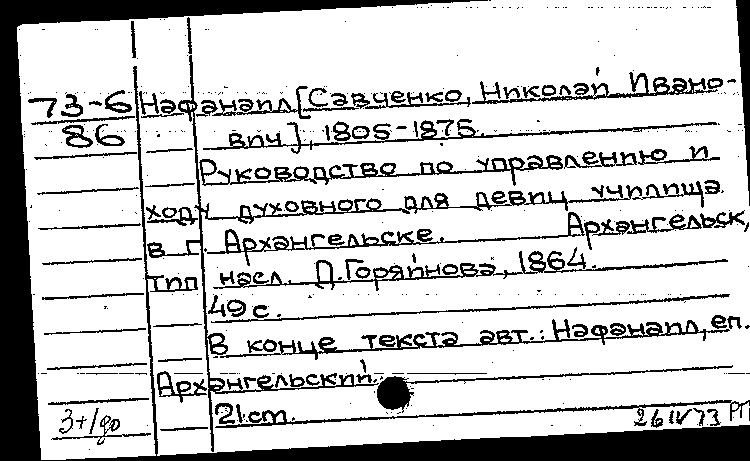 73-6 Нафанаил [Савченко, Николай Ивано-
86 вич], 1805-1875.
Руководство по управлению и
ходу духовного для девиц училища
в г. Архангельске. Архангельск,
тип. насл. Д. Горяйнова, 1864.
49 с.
В конце текста авт.: Нафанаил, еп.
Архангельский.
21 cm.
26 IV 73 РП